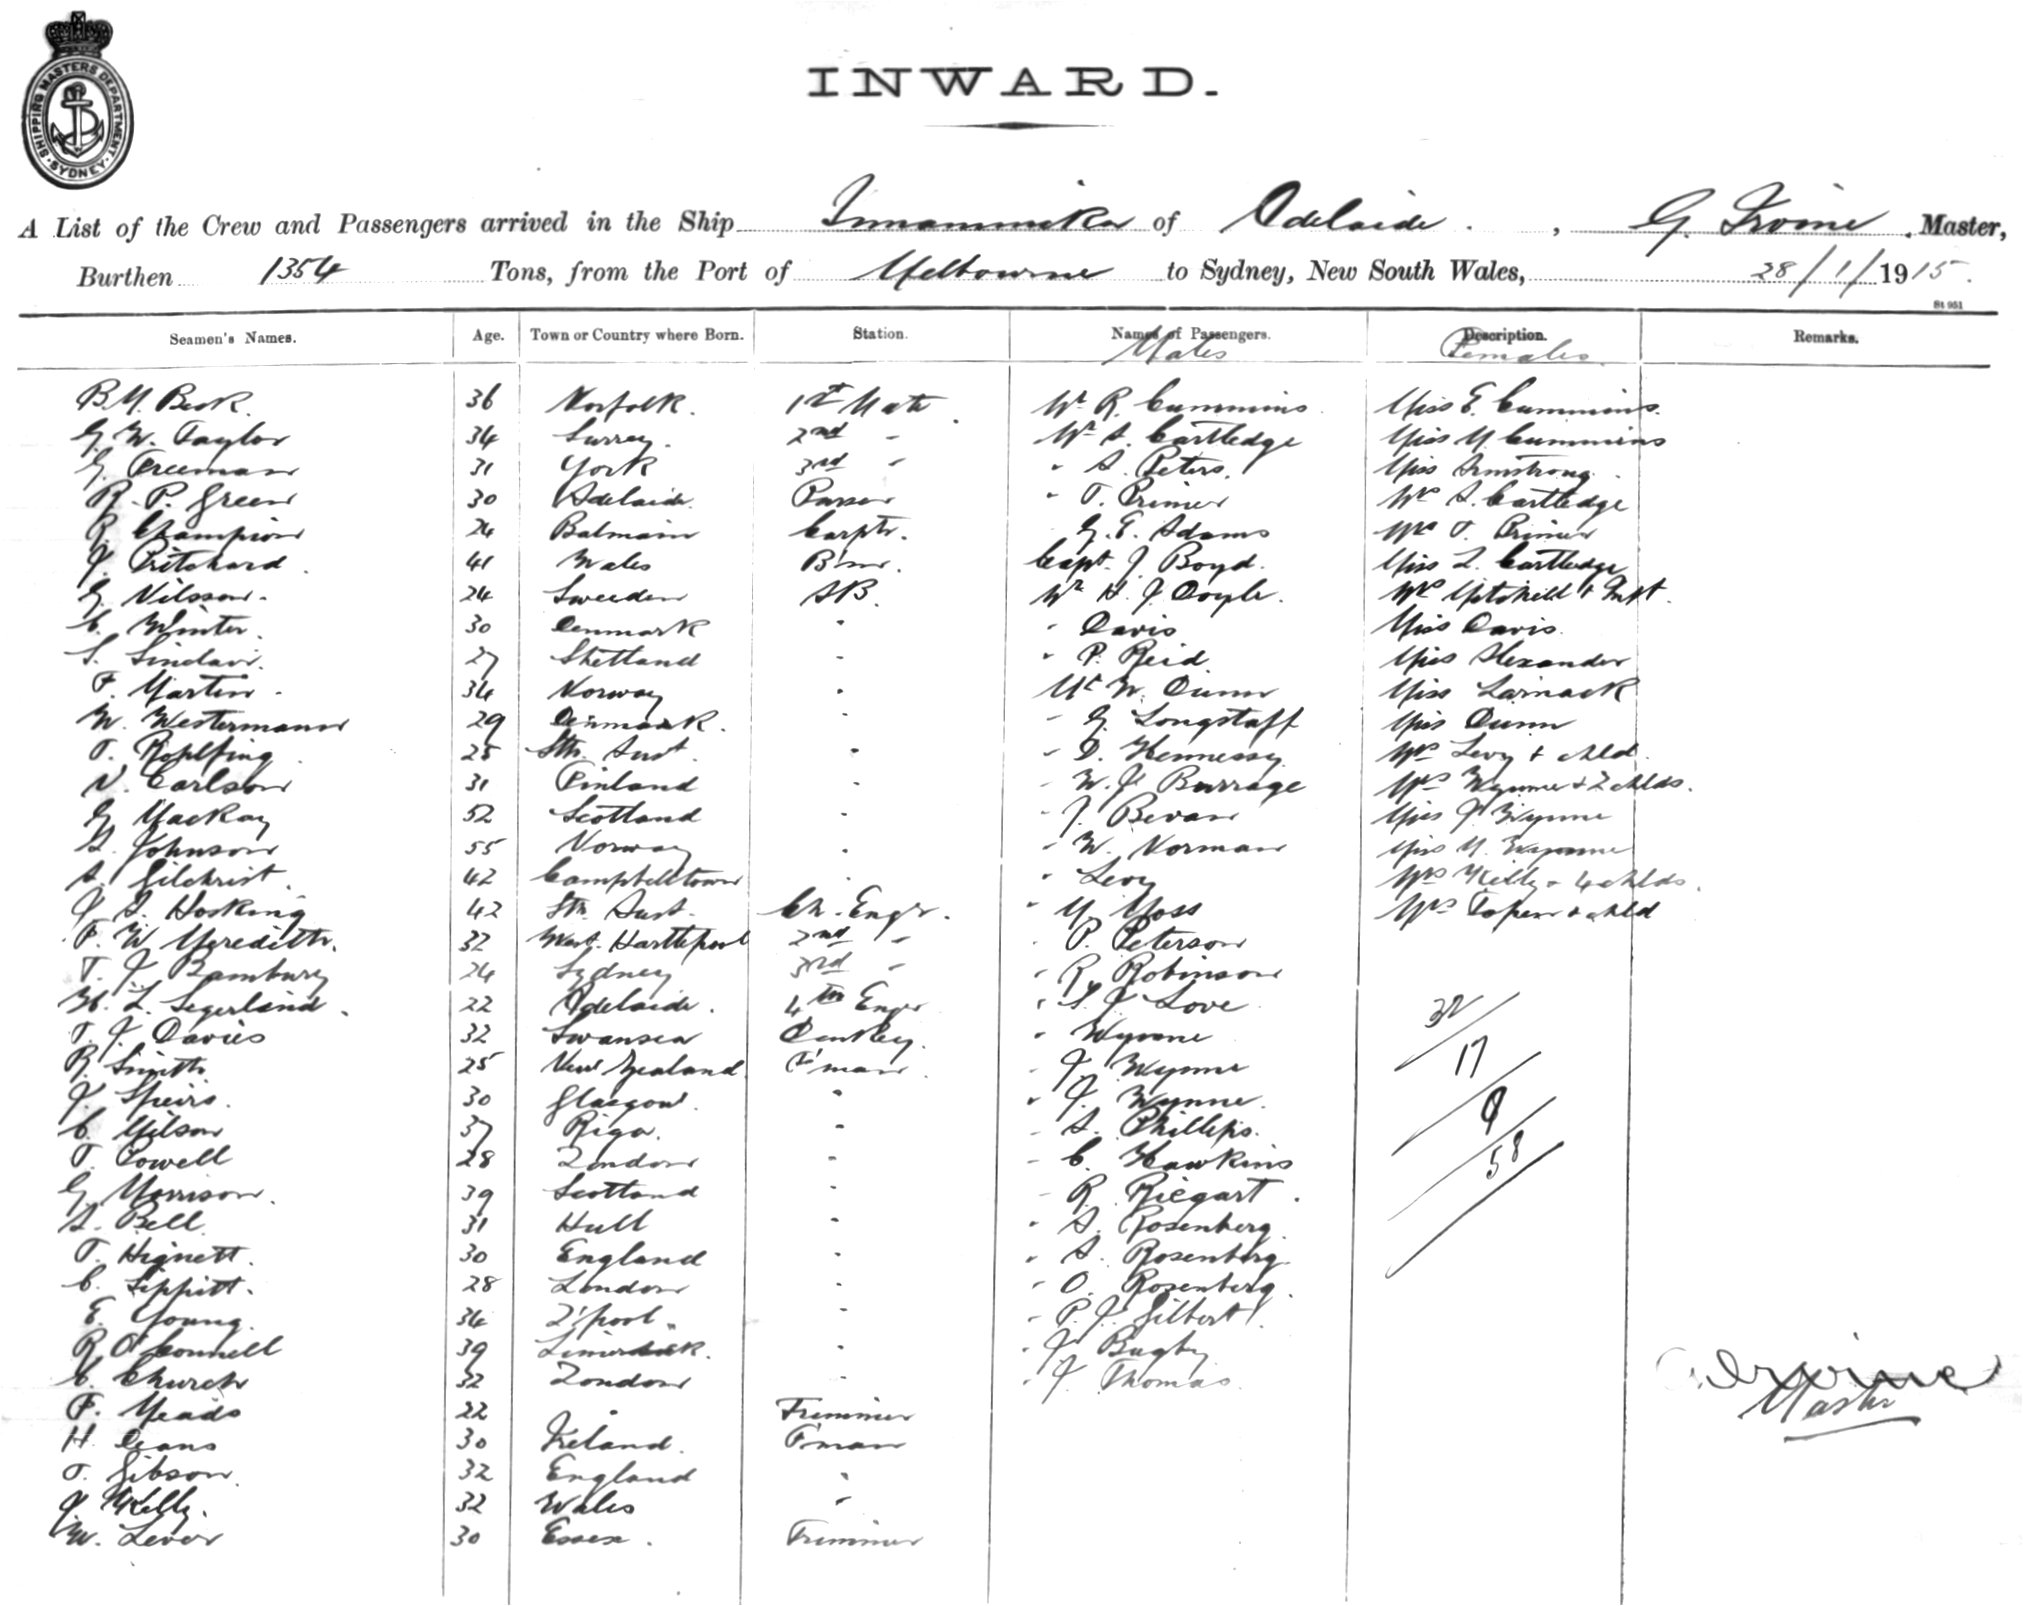 SHIPPING MASTERS DEPARTMENT · SYDNEY ·
INWARD.
A List of the Crew and Passengers arrived in the Ship Innamincka of Adelaide . , G. Irvine . Master,
Burthen 1354 Tons, from the Port of Melbourne to Sydney, New South Wales, 28/1/1915.
St 951
Seamen's Names. Age. Town or Country where Born. Station. Names of Passengers. Description. Remarks.
Males Females
B. M. Beck. 36 Norfolk. 1st Mate Mr R. Cummins Miss E. Cummins.
G. W. Taylor 34 Surrey. 2nd " Mr A. Cartledge Miss M. Cummins
G. Freeman 31 York 3rd " " A. Peters. Miss Armstrong.
R. P. Green 30 Adelaide. Purser " T. Primer Mrs A. Cartledge
R. Champion 24 Balmain Carptr. G. E. Adams Mrs T. Primer
J. Pritchard. 41 Wales Bsn. Capt. J. Boyd. Miss L. Cartledge
G. Nilsson. 24 Sweeden AB. Mr H. J. Doyle. Mrs Mitchell + Inft.
C. Winter. 30 Denmark " " Davis Miss Davis.
S. Sinclair. 27 Shetland " " P. Reid. Miss Alexander
F. Martin. 34 Norway " Mr W. Dunn Miss Larnack
W. Westermann 29 Denmark. " " G. Longstaff Miss Dunn
T. Rohlfing 25 Sth. Aust. " " D. Hennessy Mrs Levy + chld.
N. Carlson 31 Finland " " W. J. Burrage Mrs Wynne + 2 chlds.
G. Mackay 52 Scotland " " J. Bevan Miss J. Wynne
A. Johnson 55 Norway " " W. Norman Miss M. Wynne
A. Gilchrist. 42 Campbelltown " " Levy Mrs Kelly + 4 chlds.
J. A. Hosking 42 Sth. Aust. Ch. Engr. " M. Moss Mrs + chld
F. W. Meredith. 32 West. Hartlepool 2nd " " P. Peterson
T. J. Bambury 24 Sydney 3rd " " R. Robinson
H. L. Segerlind. 22 Adelaide. 4th Engr " S. J. Love
T. J. Davies 32 Swansea Donkey. " Wynne
R. Smith 25 New Zealand. F'man. " J. Wynne
J. Speirs. 30 Glasgow. " " J. Wynne.
C. Milson 37 Riga. " " A. Phillips.
T. Powell 28 London " " C. Hawkins
G. Morrison. 39 Scotland " " R. Riegart.
A. Bell. 31 Hull " " A. Rosenberg.
T. Hignett. 30 England " " A. Rosenberg.
C. Lippitt. 28 London " " O. Rosenberg.
E. Young. 34 L'pool " " P. J. Gilbert.
R. O'Connell 39 Limerick. " " J. Bugby
C. Church 32 London " " J. Thomas.
F. Meads 22 " Trimmer
H. Deans 30 Ireland. F'man
T. Gibson. 32 England "
J. Kelly. 32 Wales "
W. Lever 30 Essex. Trimmer
32
17
9
58
Irvine
Master